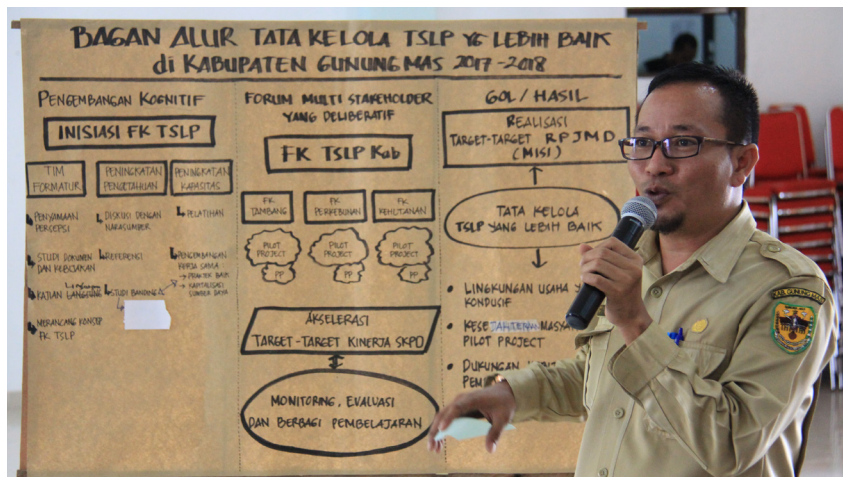 BAGAN ALUR TATA KELOLA TSLP YG LEBIH BAIK
di KABUPATEN GUNUNG MAS 2017-2018
PENGEMBANGAN KOGNITIF
INISIASI FK TSLP
TIM
FORMATUR
PENYAMAAN
PERCEPSI
STUDI DOKUMEN
DAN KEBIJAKAN
KAJIAN LANGSUNG
MERANCANG KONSEP
FK TSLP
PENINGKATAN
PENGETAHUAN
DISKUSI DENGAN
NARASUMBER
REFERENSI
STUDI BANDING
PENINGKATAN
KAPASITAS
PELATIHAN
PENGEMBANGAN
KERJA SAMA
→ PRAKTEK BAIK
→ KAPITALISASI
SUMBER DAYA
FORUM MULTI STAKEHOLDER
YANG DELIBERATIF
FK TSLP Kab
FK
TAMBANG
FK
PERKEBUNAN
FK
KEHUTANAN
PILOT
PROJECT
PP
PILOT
PROJECT
PP
PILOT
PROJECT
PP
AKSELERASI
TARGET-TARGET KINERJA SKPD
MONITORING, EVALUASI
DAN BERBAGI PEMBELAJARAN
GOL/HASIL
REALISASI
TARGET-TARGET RPJMD
(MISI)
TATA KELOLA
TSLP YANG LEBIH BAIK
• LINGKUNGAN USAHA Y
KONDUSIF
• KESEJAHTERAAN MASYA
PILOT PROJECT
• DUKUNGAN
PEM
KAB. GUNUNG MAS